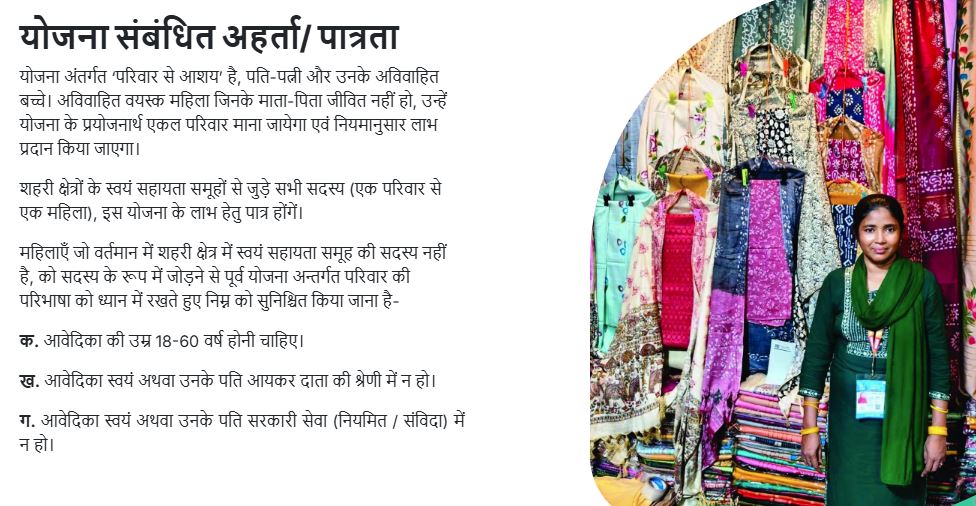 योजना संबंधित अहर्ता/ पात्रता
योजना अंतर्गत ‘परिवार से आशय’ है, पति-पत्नी और उनके अविवाहित
बच्चे। अविवाहित वयस्क महिला जिनके माता-पिता जीवित नहीं हो, उन्हें
योजना के प्रयोजनार्थ एकल परिवार माना जायेगा एवं नियमानुसार लाभ
प्रदान किया जाएगा।
शहरी क्षेत्रों के स्वयं सहायता समूहों से जुड़े सभी सदस्य (एक परिवार से
एक महिला), इस योजना के लाभ हेतु पात्र होंगें।
महिलाएँ जो वर्तमान में शहरी क्षेत्र में स्वयं सहायता समूह की सदस्य नहीं
है, को सदस्य के रूप में जोड़ने से पूर्व योजना अन्तर्गत परिवार की
परिभाषा को ध्यान में रखते हुए निम्न को सुनिश्चित किया जाना है-
क. आवेदिका की उम्र 18-60 वर्ष होनी चाहिए।
ख. आवेदिका स्वयं अथवा उनके पति आयकर दाता की श्रेणी में न हो।
ग. आवेदिका स्वयं अथवा उनके पति सरकारी सेवा (नियमित / संविदा) में
न हो।